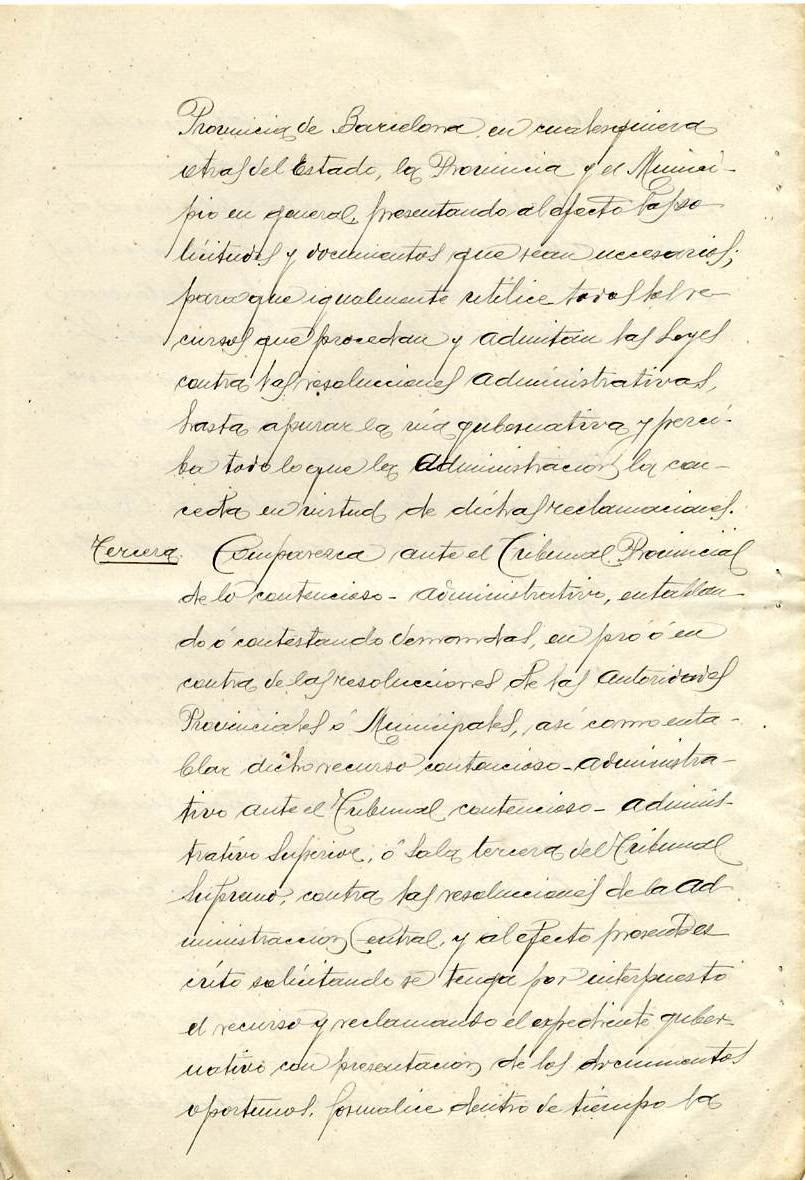 Provincia de Barcelona, en cualesquiera
otras del Estado, la Provincia y el Munici-
pio en general, presentando al efecto las so
licitudes y documentos que sean necesarios;
para que igualmente utilice todos los re-
cursos que procedan y admitan las Leyes
contra las resoluciones administrativas,
hasta apurar la via gubernativa y perci-
ba todo lo que la Administracion la con-
ceda en virtud de dichas reclamaciones.
Tercera. Comparezca ante el Tribunal Provincial
de lo contencioso-administrativo, entablan-
do ó contestando demandas, en pró ó en
contra de las resoluciones de las Autoridades
Provinciales ó Municipales, asi como enta-
blar dicho recurso contencioso-administra-
tivo ante el Tribunal contencioso-adminis-
trativo Superior, ó Sala tercera del Tribunal
Supremo, contra las resoluciones de la Ad
ministraccion Central, y al efecto presente es
crito solicitando se tenga por interpuesto
el recurso y reclamando el expediente guber-
nativo con presentacion de los documentos
oportunos, formalice dentro de tiempo la